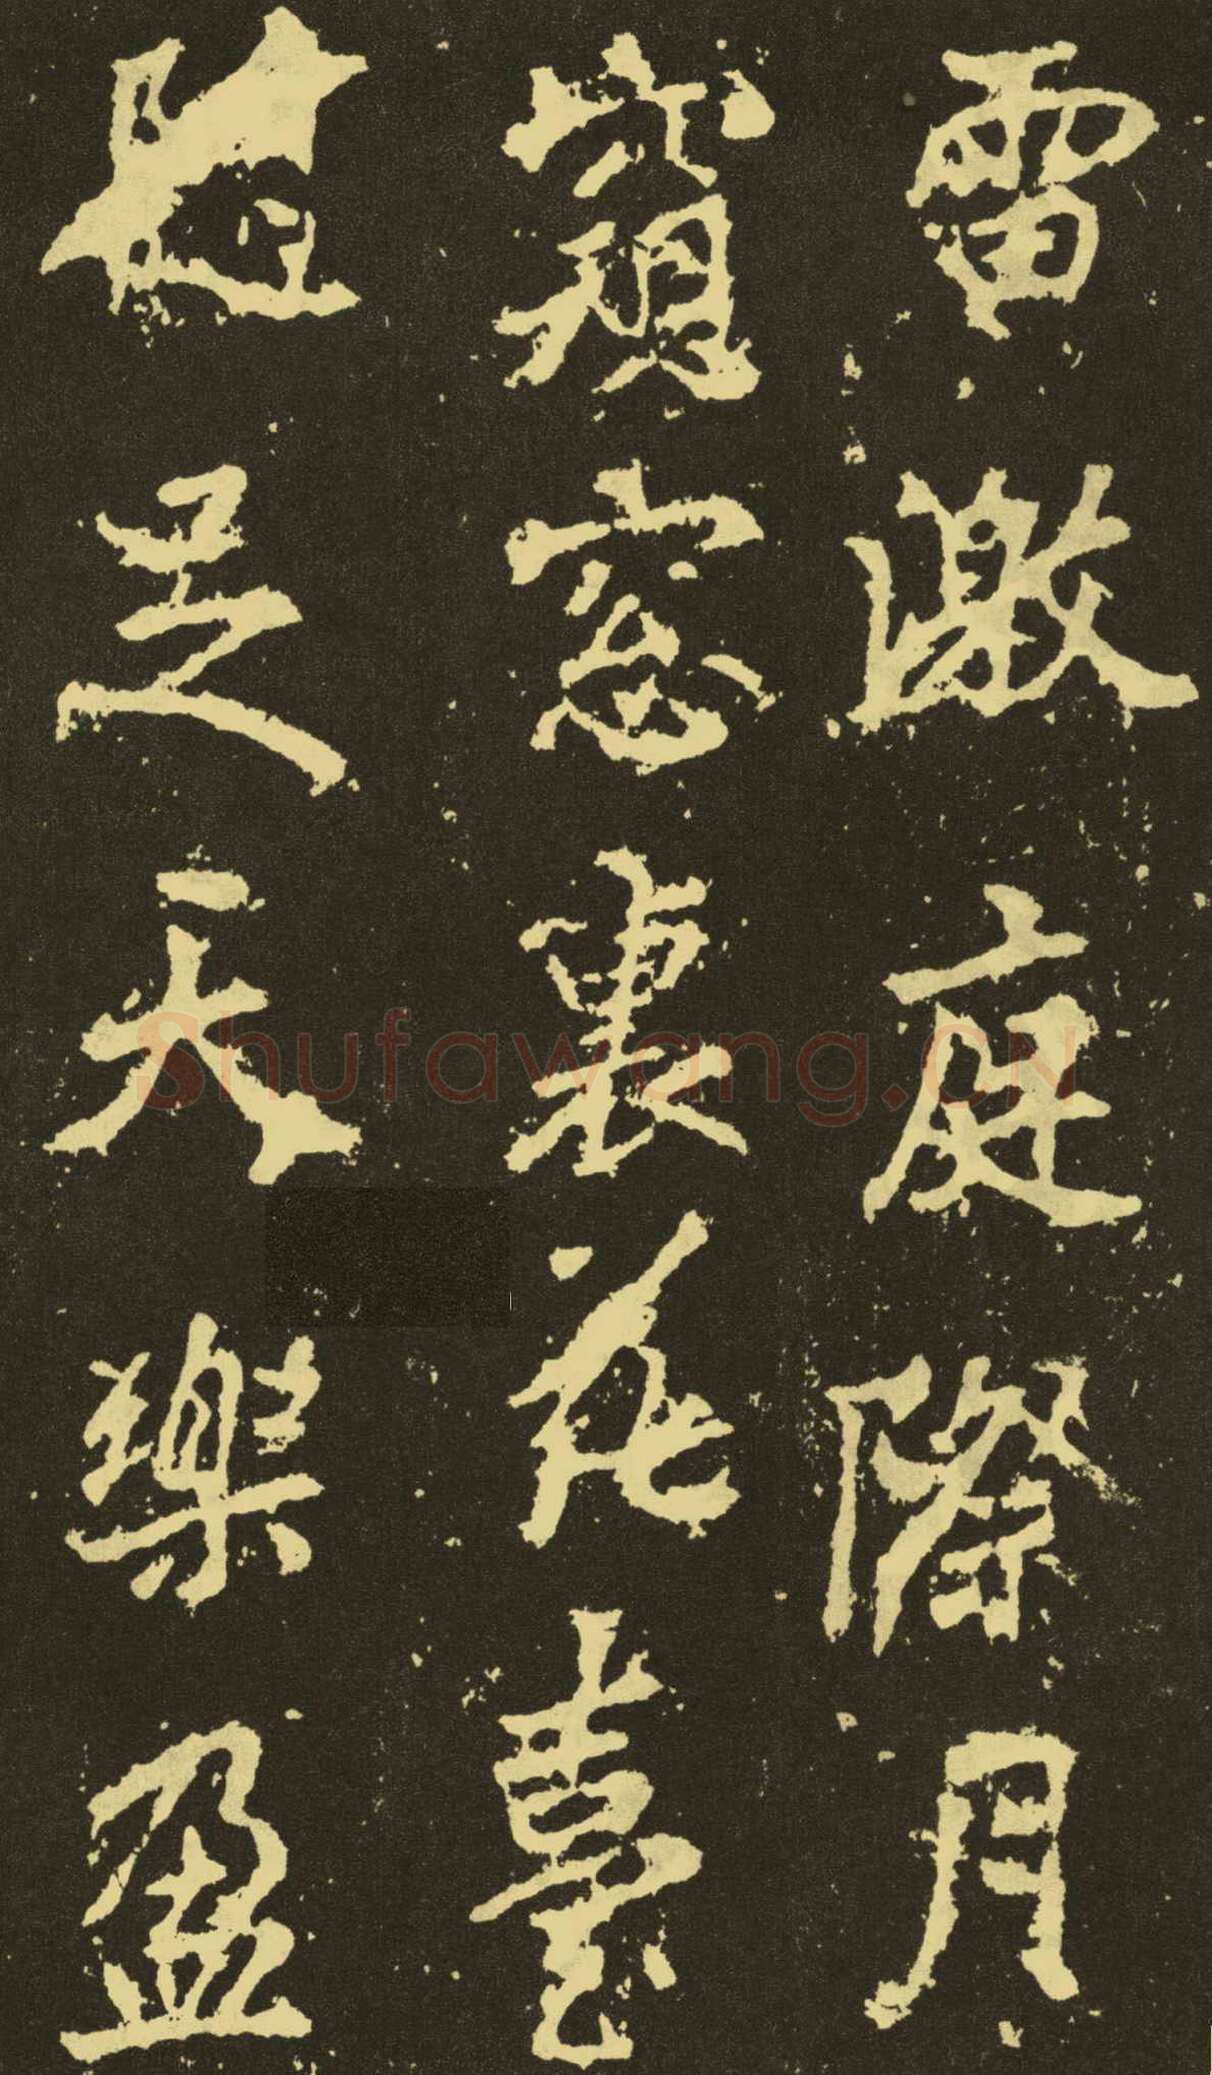 雷激庭際月
窺窓裏花臺
足天樂盈
Shufawang.CN